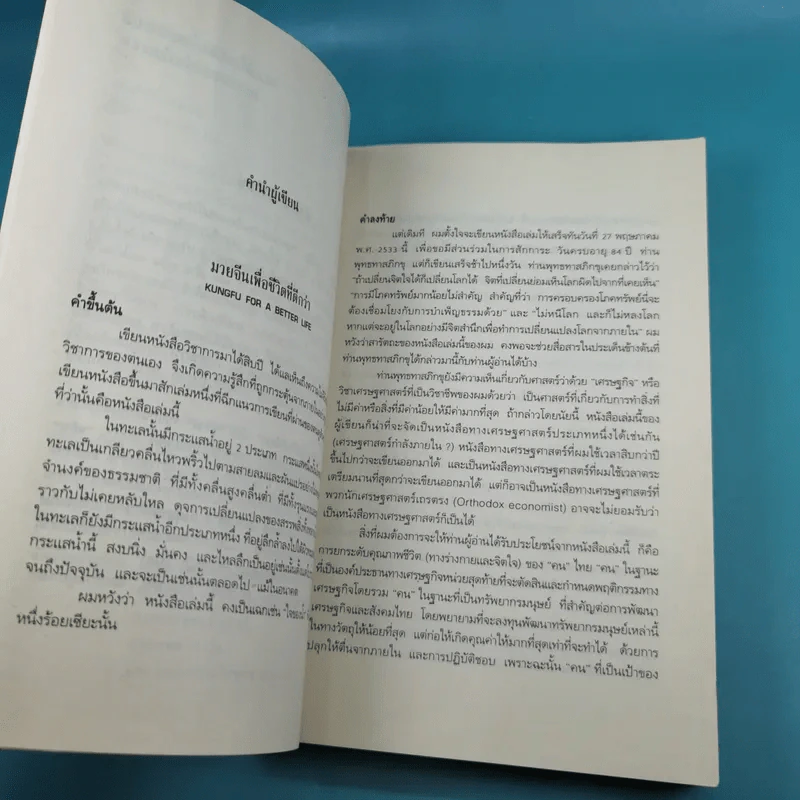 คำนำผู้เขียน
มวยจีนเพื่อชีวิตที่ดีกว่า
KUNGFU FOR A BETTER LIFE
คำขึ้นต้น
เขียนหนังสือวิชาการมาได้สิบปี ได้แลเห็นถึงความ
วิชาการของตนเอง จึงเกิดความรู้สึกที่ถูกกระตุ้นจากภายใน
เขียนหนังสือขึ้นมาสักเล่มหนึ่งที่ฉีกแนวการเขียนที่ผ่านของ
ที่ว่านั้นคือหนังสือเล่มนี้
ในทะเลนั้นมีกระแสน้ำอยู่ 2 ประเภท กระแสหนึ่ง
ทะเลเป็นเกลียวคลื่นไหวพริ้วไปตามสายลมและผันแปร
จำนงค์ของธรรมชาติ ที่มีทั้งคลื่นสูงคลื่นต่ำ ที่มีทั้งรุนแรง
ราวกับไม่เคยหลับใหล ดุจการเปลี่ยนแปลงของสรรพสิ่ง
ในทะเลก็ยังมีกระแสน้ำอีกประเภทหนึ่ง ที่อยู่ลึกล้ำลงไปใต้
กระแสน้ำนี้ สงบนิ่ง มั่นคง และไหลลึกเป็นอยู่เช่นนั้นตั้งแต่
จนถึงปัจจุบัน และจะเป็นเช่นนั้นตลอดไป แม้ในอนาคต
ผมหวังว่า หนังสือเล่มนี้ คงเป็นเฉกเช่น "ใจของ
หนึ่งร้อยเซียะนั้น
คำลงท้าย
แต่เดิมที ผมตั้งใจจะเขียนหนังสือเล่มนี้ให้เสร็จทันวันที่ 27 พฤษภาคม
พ.ศ. 2533 นี้ เพื่อขอมีส่วนร่วมในการสักการะ วันครบอายุ 84 ปี ท่าน
พุทธทาสภิกขุ แต่ก็เขียนเสร็จช้าไปหนึ่งวัน ท่านพุทธทาสภิกขุเคยกล่าวไว้ว่า
"ถ้าเปลี่ยนจิตใจได้ก็เปลี่ยนโลกได้ จิตที่เปลี่ยนย่อมเห็นโลกผิดไปจากที่เคยเห็น"
"การมีโภคทรัพย์มากน้อยไม่สำคัญ สำคัญที่ว่า การครอบครองโภคทรัพย์นี่จะ
ต้องเชื่อมโยงกับการบำเพ็ญธรรมด้วย" และ "ไม่หนีโลก และก็ไม่หลงโลก
หากแต่จะอยู่ในโลกอย่างมีจิตสำนึกเพื่อทำการเปลี่ยนแปลงโลกจากภายใน" ผม
หวังว่าสารัตถะของหนังสือเล่มนี้ของผม คงพอจะช่วยสื่อสารในประเด็นข้างต้นที่
ท่านพุทธทาสภิกขุได้กล่าวมานี้กับท่านผู้อ่านได้บ้าง
ท่านพุทธทาสภิกขุยังมีความเห็นเกี่ยวกับศาสตร์ว่าด้วย "เศรษฐกิจ" หรือ
วิชาเศรษฐศาสตร์ที่เป็นวิชาชีพของผมด้วยว่า เป็นศาสตร์ที่เกี่ยวกับการทำสิ่งที่
ไม่มีค่าหรือสิ่งที่มีค่าน้อยให้มีค่ามากที่สุด ถ้ากล่าวโดยนัยนี้ หนังสือเล่มนี้ของ
ผู้เขียนก็น่าที่จะจัดเป็นหนังสือทางเศรษฐศาสตร์ประเภทหนึ่งได้เช่นกัน
(เศรษฐศาสตร์กำลังภายใน ?) หนังสือทางเศรษฐศาสตร์ที่ผมใช้เวลาสิบกว่าปี
ขึ้นไปกว่าจะเขียนออกมาได้ และเป็นหนังสือทางเศรษฐศาสตร์ที่ผมใช้เวลาตระ
เตรียมนานที่สุดกว่าจะเขียนออกมาได้ แต่ก็อาจเป็นหนังสือทางเศรษฐศาสตร์ที่
พวกนักเศรษฐศาสตร์เถรตรง (Orthodox economist) อาจจะไม่ยอมรับว่า
เป็นหนังสือทางเศรษฐศาสตร์ก็เป็นได้
สิ่งที่ผมต้องการจะให้ท่านผู้อ่านได้รับประโยชน์จากหนังสือเล่มนี้ ก็คือ
การยกระดับคุณภาพชีวิต (ทางร่างกายและจิตใจ) ของ "คน" ไทย "คน" ในฐานะ
ที่เป็นองค์ประธานทางเศรษฐกิจหน่วยสุดท้ายที่จะตัดสินและกำหนดพฤติกรรมทาง
เศรษฐกิจโดยรวม "คน" ในฐานะที่เป็นทรัพยากรมนุษย์ ที่สำคัญต่อการพัฒนา
เศรษฐกิจและสังคมไทย โดยพยายามที่จะลงทุนพัฒนาทรัพยากรมนุษย์เหล่านี้
ในทางวัตถุให้น้อยที่สุด แต่ก่อให้เกิดคุณค่าให้มากที่สุดเท่าที่จะทำได้ ด้วยการ
ปลุกให้ตื่นจากภายใน และการปฏิบัติชอบ เพราะฉะนั้น "คน" ที่เป็นเป้าของ